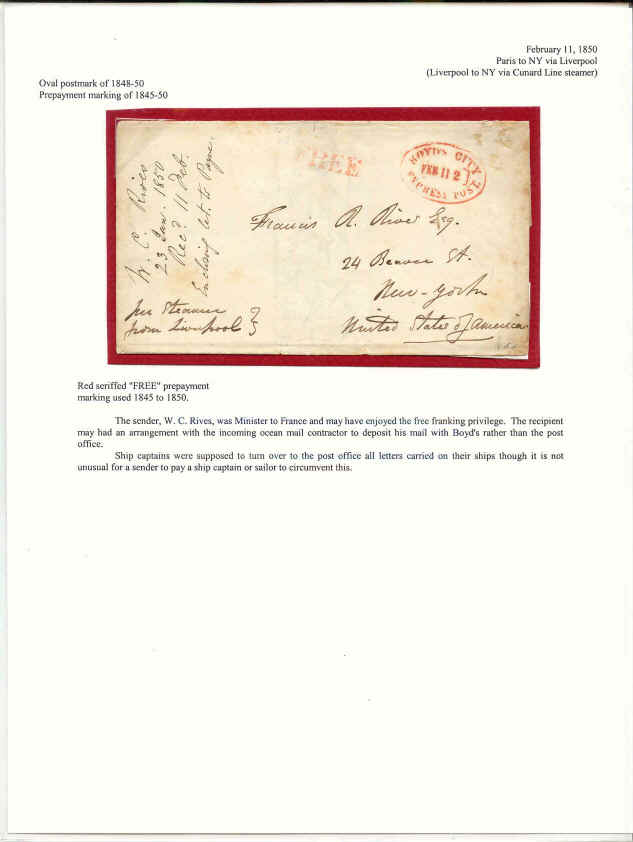 February 11, 1850
Paris to NY via Liverpool
(Liverpool to NY via Cunard Line steamer)
Oval postmark of 1848-50
Prepayment marking of 1845-50
W. C. Rives
23 Jan. 1850
Recd. 11 Feb.
Enclosing let. to Page.
FREE
BOYD'S CITY
FEB 11 2
EXPRESS POST.
Francis R. Rives Esq.
24 Beaver St.
New-York
United States of America
per Steamer
from Liverpool
Red seriffed "FREE" prepayment
marking used 1845 to 1850.
The sender, W. C. Rives, was Minister to France and may have enjoyed the free franking privilege. The recipient
may had an arrangement with the incoming ocean mail contractor to deposit his mail with Boyd's rather than the post
office.
Ship captains were supposed to turn over to the post office all letters carried on their ships though it is not
unusual for a sender to pay a ship captain or sailor to circumvent this.